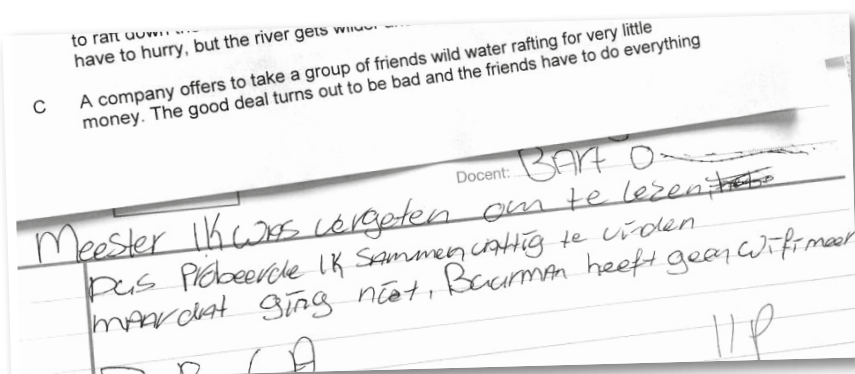 to raft down
have to hurry, but the river gets wilder
C A company offers to take a group of friends wild water rafting for very little
money. The good deal turns out to be bad and the friends have to do everything
Docent: BART O
Meester Ik was vergeten om te lezen
Dus Probeerde Ik Sammenvattig te vinden
maar dat ging niet, Buurman heeft geen wifi meer